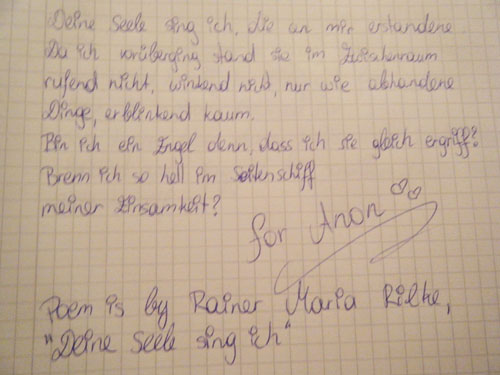 Deine Seele sing ich, die an mir erstandene.
Da ich vorüberging stand sie im Zwischenraum
rufend nicht, winkend nicht, nur wie abhandene
Dinge, erblinkend kaum.
Bin ich ein Engel denn, dass ich sie gleich ergriff?
Brenn ich so hell im Seitenschiff
meiner Einsamkeit?
for Anon ♡♡
Poem is by Rainer Maria Rilke,
"Deine Seele sing ich"